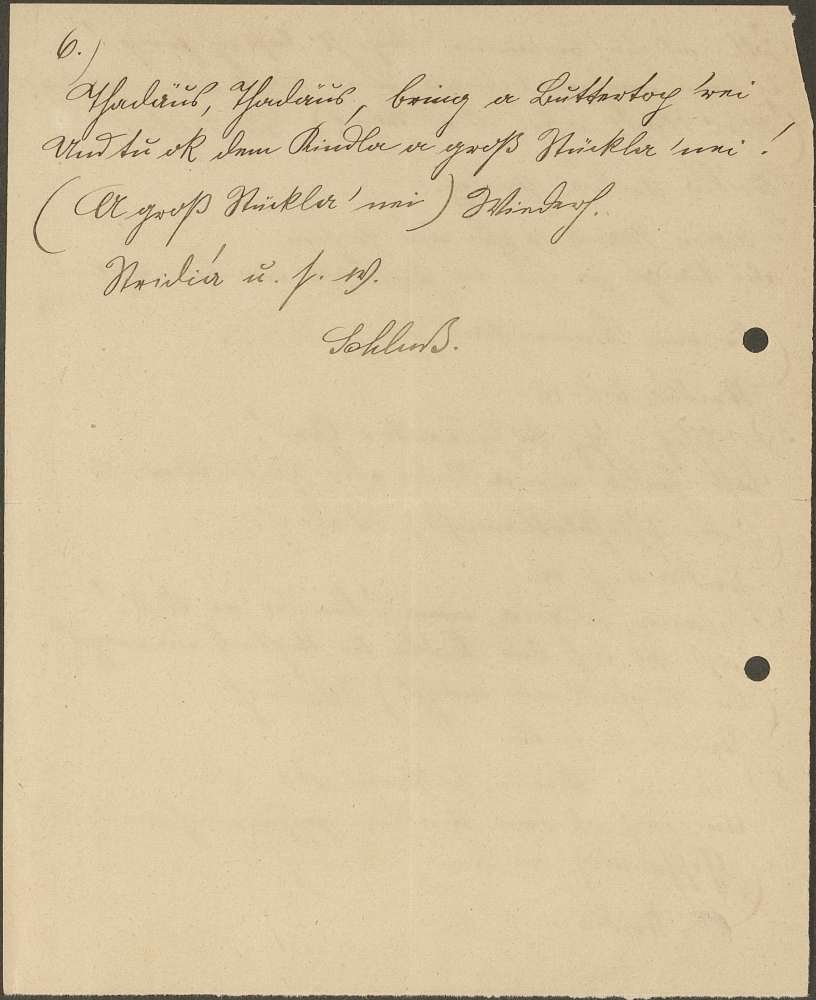 6.)
Thadäus, Thadäus, bring a Buttertop 'rei
Und tu ok dem Kindla a groß Stückla 'nei!
(A groß Stückla 'nei) Wiederh.
Stridiá u. s. w.
Schluß.